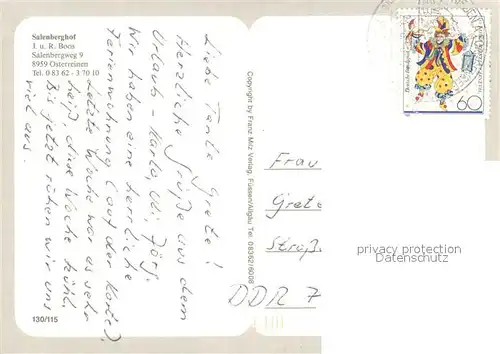 Salenberghof
J. u. R. Boos
Salenbergweg 9
8959 Osterreinen
Tel. 0 83 62 - 3 70 10
Liebe Tante Grete!
Herzliche Grüße aus dem
Urlaub - Karla, Uli, Jörg.
Wir haben eine herrliche
Ferienwohnung (auf der Karte).
Letzte Woche war es sehr
heiß, diese Woche kühl.
Bis jetzt ruhen wir uns
viel aus.
130/115
Copyright by Franz Milz Verlag, Füssen/Allgäu Tel. 08362/6008
60
Frau
Grete
Straß
DDR 7
privacy protection
Datenschutz